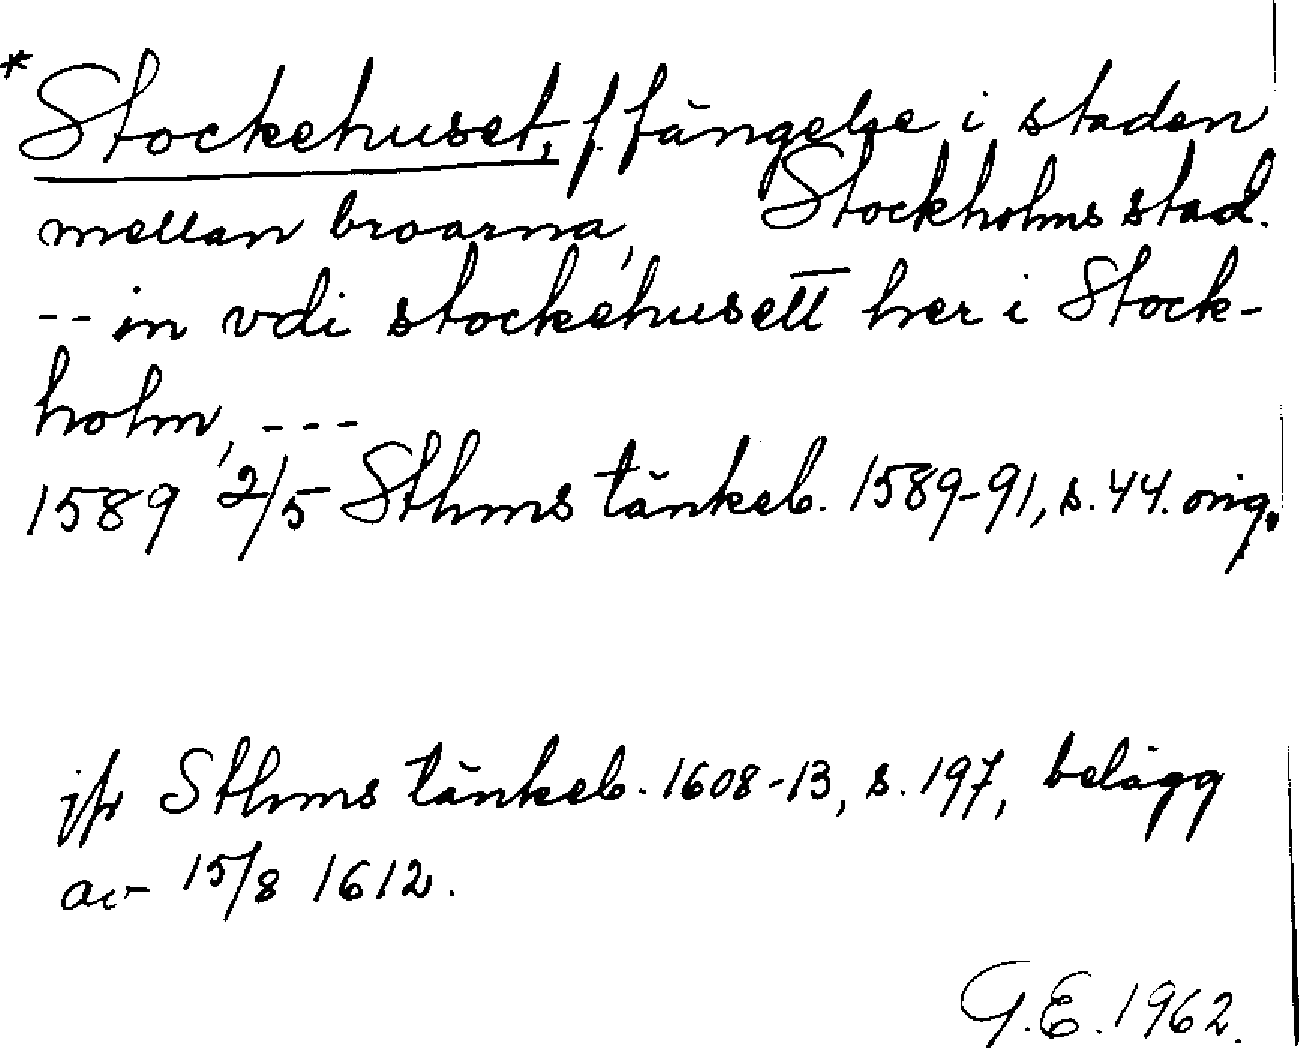 *Stockehuset, f. fängelse i staden
mellan broarna, Stockholms stad.
-- in vdi stockehusett her i Stock-
holm, ---
1589 2/5 Sthms tänkeb. 1589-91, s. 44. orig.
jfr Sthms tänkeb. 1608-13, s. 197, belägg
av 15/8 1612.
G.E. 1962.